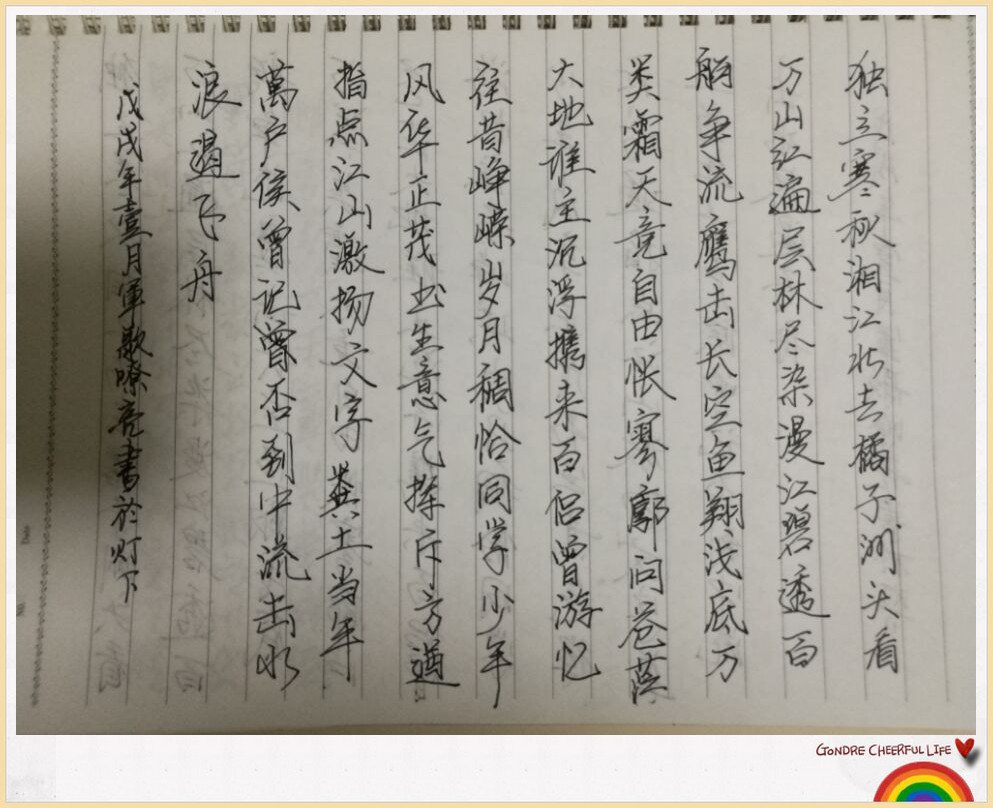 独立寒秋湘江北去橘子洲头看
万山红遍层林尽染漫江碧透百
舸争流鹰击长空鱼翔浅底万
类霜天竞自由怅寥廓问苍茫
大地谁主沉浮携来百侣曾游忆
往昔峥嵘岁月稠恰同学少年
风华正茂书生意气挥斥方遒
指点江山激扬文字粪土当年
萬户侯曾记曾否到中流击水
浪遏飞舟
戊戌年壹月軍歌嘹亮書於灯下
GONDRE CHEERFUL LIFE